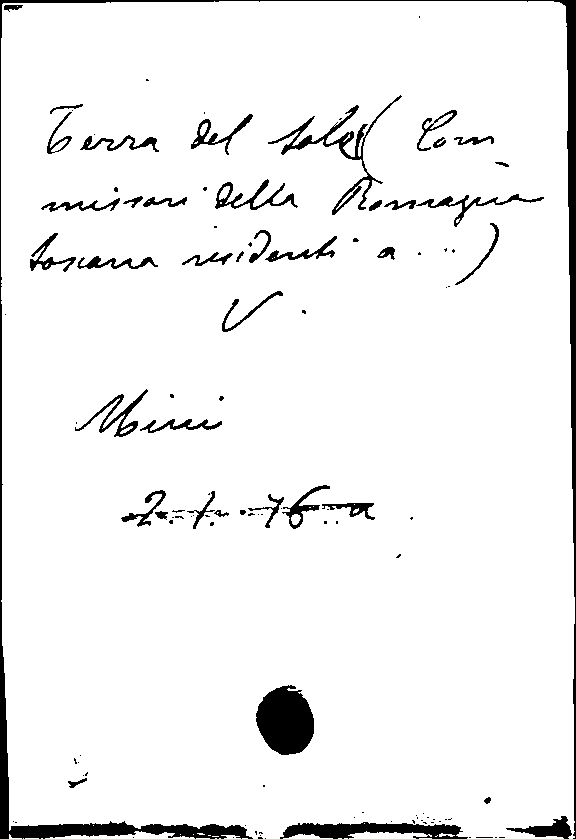 Terra del Sole (Com
missari della Romagna
toscana residenti a ...)
V.
Mini
2.1.76.a